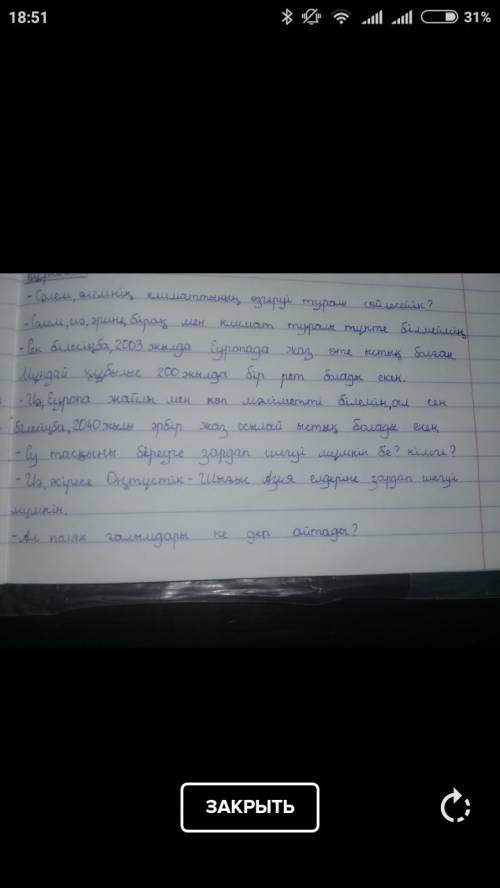 18:51
31%
- Сәлем, әлемнің климаттының өзгеруі туралы сөйлесейік?
- Сәлем, иә, әрине, бірақ мен климат туралы түнте білмеймін,
- Сен білесіңба, 2003 жылда Еуропада жаз өте ыстық болған
Мұндай құбылыс 200 жылда бір рет болады екен.
- Иә, Еуропа жайлы мен көп мәліметті білемін, ал сен
білесіңба, 2040 жылы әрбір жаз осылай ыстық болады екен
- Су тасқыны біреуге зардап шегуі мүмкін бе? кімге?
- Иә, әсіресе Оңтүстік - Шығыс Азия елдеріне зардап шегуі
мүмкін.
- Ал поляк ғалымдары не деп айтады?
ЗАКРЫТЬ